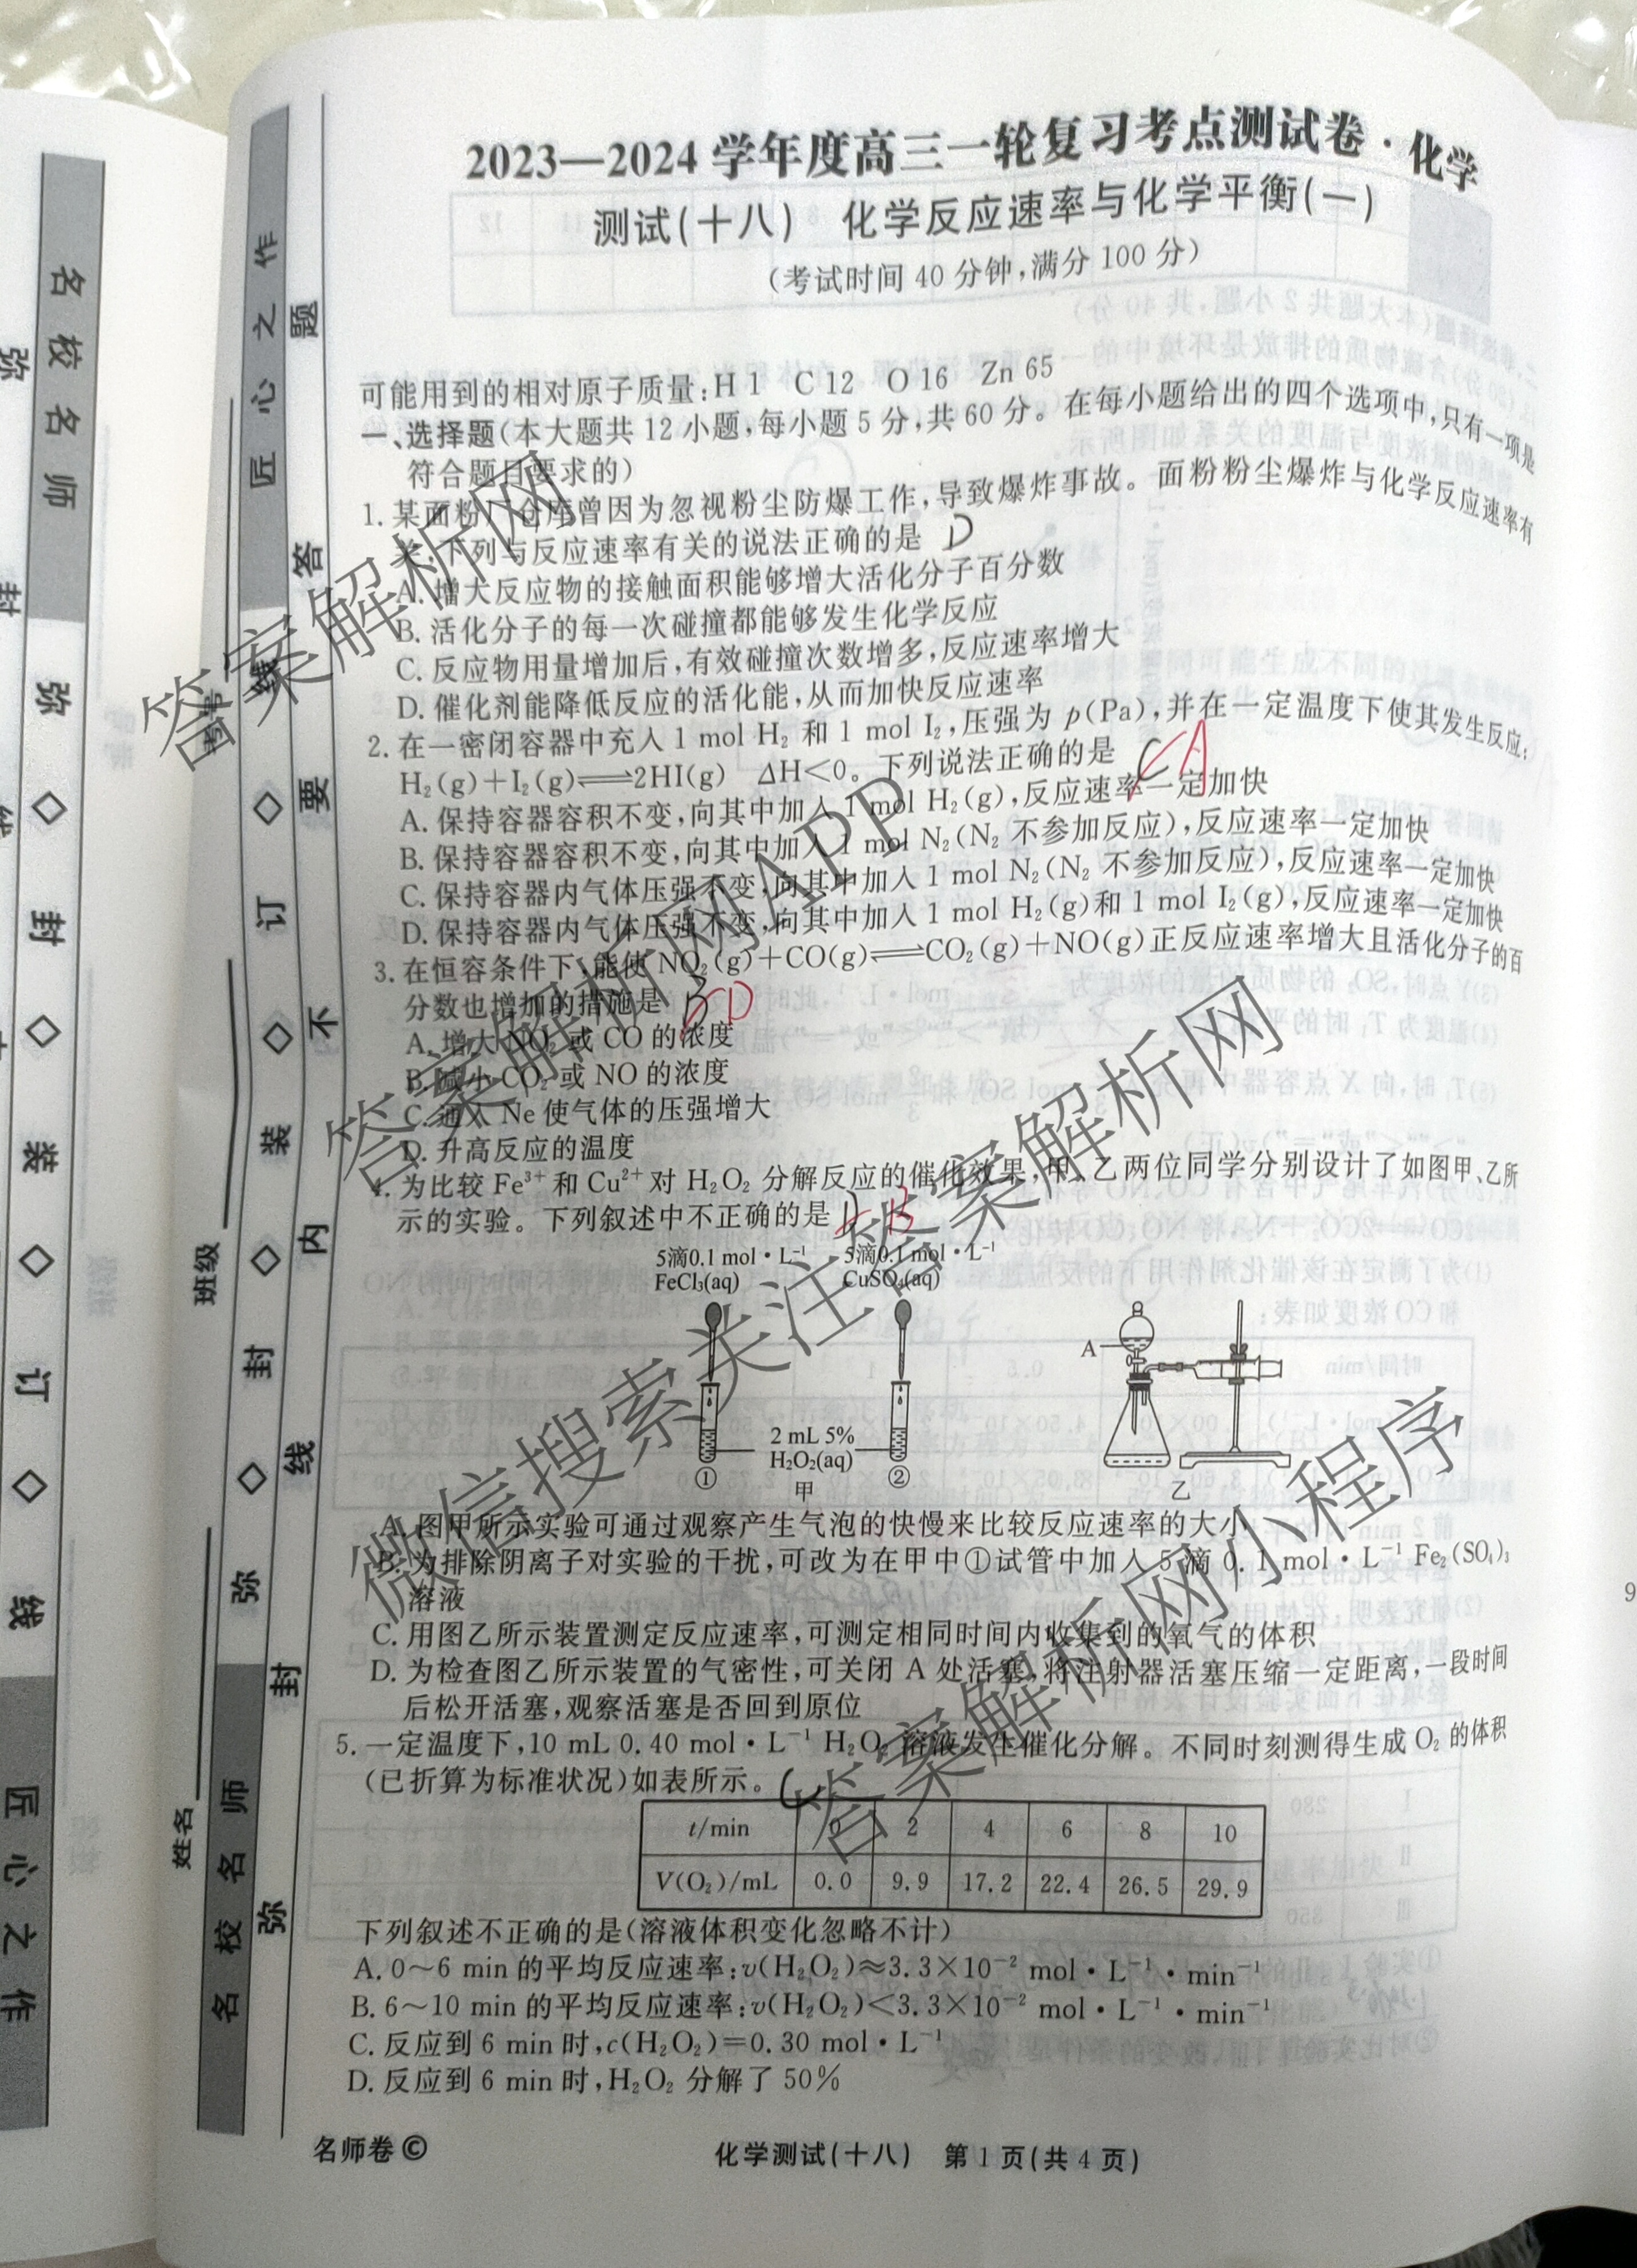 2023—2024 学年度高三一轮复习考点测试卷·化学
测试(十八) 化学反应速率与化学平衡(一)
(考试时间 40 分钟,满分 100 分)
可能用到的相对原子质量:H 1 C 12 O 16 Zn 65
一、选择题(本大题共 12 小题,每小题 5 分,共 60 分。在每小题给出的四个选项中,只有一项是
符合题目要求的)
1. 某面粉厂仓库曾因为忽视粉尘防爆工作,导致爆炸事故。面粉粉尘爆炸与化学反应速率有
关,下列与反应速率有关的说法正确的是 D
A. 增大反应物的接触面积能够增大活化分子百分数
B. 活化分子的每一次碰撞都能够发生化学反应
C. 反应物用量增加后,有效碰撞次数增多,反应速率增大
D. 催化剂能降低反应的活化能,从而加快反应速率
2. 在一密闭容器中充入 1 mol H₂ 和 1 mol I₂,压强为 p(Pa),并在一定温度下使其发生反应:
H₂(g)+I₂(g)⇌2HI(g) ΔH<0。下列说法正确的是 C A
A. 保持容器容积不变,向其中加入 1 mol H₂(g),反应速率一定加快
B. 保持容器容积不变,向其中加入 1 mol N₂(N₂ 不参加反应),反应速率一定加快
C. 保持容器内气体压强不变,向其中加入 1 mol N₂(N₂ 不参加反应),反应速率一定加快
D. 保持容器内气体压强不变,向其中加入 1 mol H₂(g)和 1 mol I₂(g),反应速率一定加快
3. 在恒容条件下,能使 NO₂(g)+CO(g)⇌CO₂(g)+NO(g)正反应速率增大且活化分子的百
分数也增加的措施是 B D
A. 增大 NO₂ 或 CO 的浓度
B. 减小 CO₂ 或 NO 的浓度
C. 通入 Ne 使气体的压强增大
D. 升高反应的温度
4. 为比较 Fe³⁺ 和 Cu²⁺ 对 H₂O₂ 分解反应的催化效果,甲、乙两位同学分别设计了如图甲、乙所
示的实验。下列叙述中不正确的是 D B
5滴0.1 mol·L⁻¹ 5滴0.1 mol·L⁻¹
FeCl₃(aq) CuSO₄(aq)
A
2 mL 5%
H₂O₂(aq)
① ②
甲 乙
A. 图甲所示实验可通过观察产生气泡的快慢来比较反应速率的大小
B. 为排除阴离子对实验的干扰,可改为在甲中①试管中加入 5 滴 0.1 mol·L⁻¹ Fe₂(SO₄)₃
溶液
C. 用图乙所示装置测定反应速率,可测定相同时间内收集到的氧气的体积
D. 为检查图乙所示装置的气密性,可关闭 A 处活塞,将注射器活塞压缩一定距离,一段时间
后松开活塞,观察活塞是否回到原位
5. 一定温度下,10 mL 0.40 mol·L⁻¹ H₂O₂ 溶液发生催化分解。不同时刻测得生成 O₂ 的体积
(已折算为标准状况)如表所示。 C
t/min 0 2 4 6 8 10
V(O₂)/mL 0.0 9.9 17.2 22.4 26.5 29.9
下列叙述不正确的是(溶液体积变化忽略不计)
A. 0～6 min 的平均反应速率:v(H₂O₂)≈3.3×10⁻² mol·L⁻¹·min⁻¹
B. 6～10 min 的平均反应速率:v(H₂O₂)<3.3×10⁻² mol·L⁻¹·min⁻¹
C. 反应到 6 min 时,c(H₂O₂)=0.30 mol·L⁻¹
D. 反应到 6 min 时,H₂O₂ 分解了 50%
名师卷©
化学测试(十八) 第 1 页(共 4 页)
名校名师 弥◇封◇装◇订◇线 匠心之作
名校名师 弥◇封◇装◇订◇线 匠心之作
弥封线内不要答题
姓名
班级
答案解析网
答案解析网APP
微信搜索关注答案解析网
答案解析网小程序
9